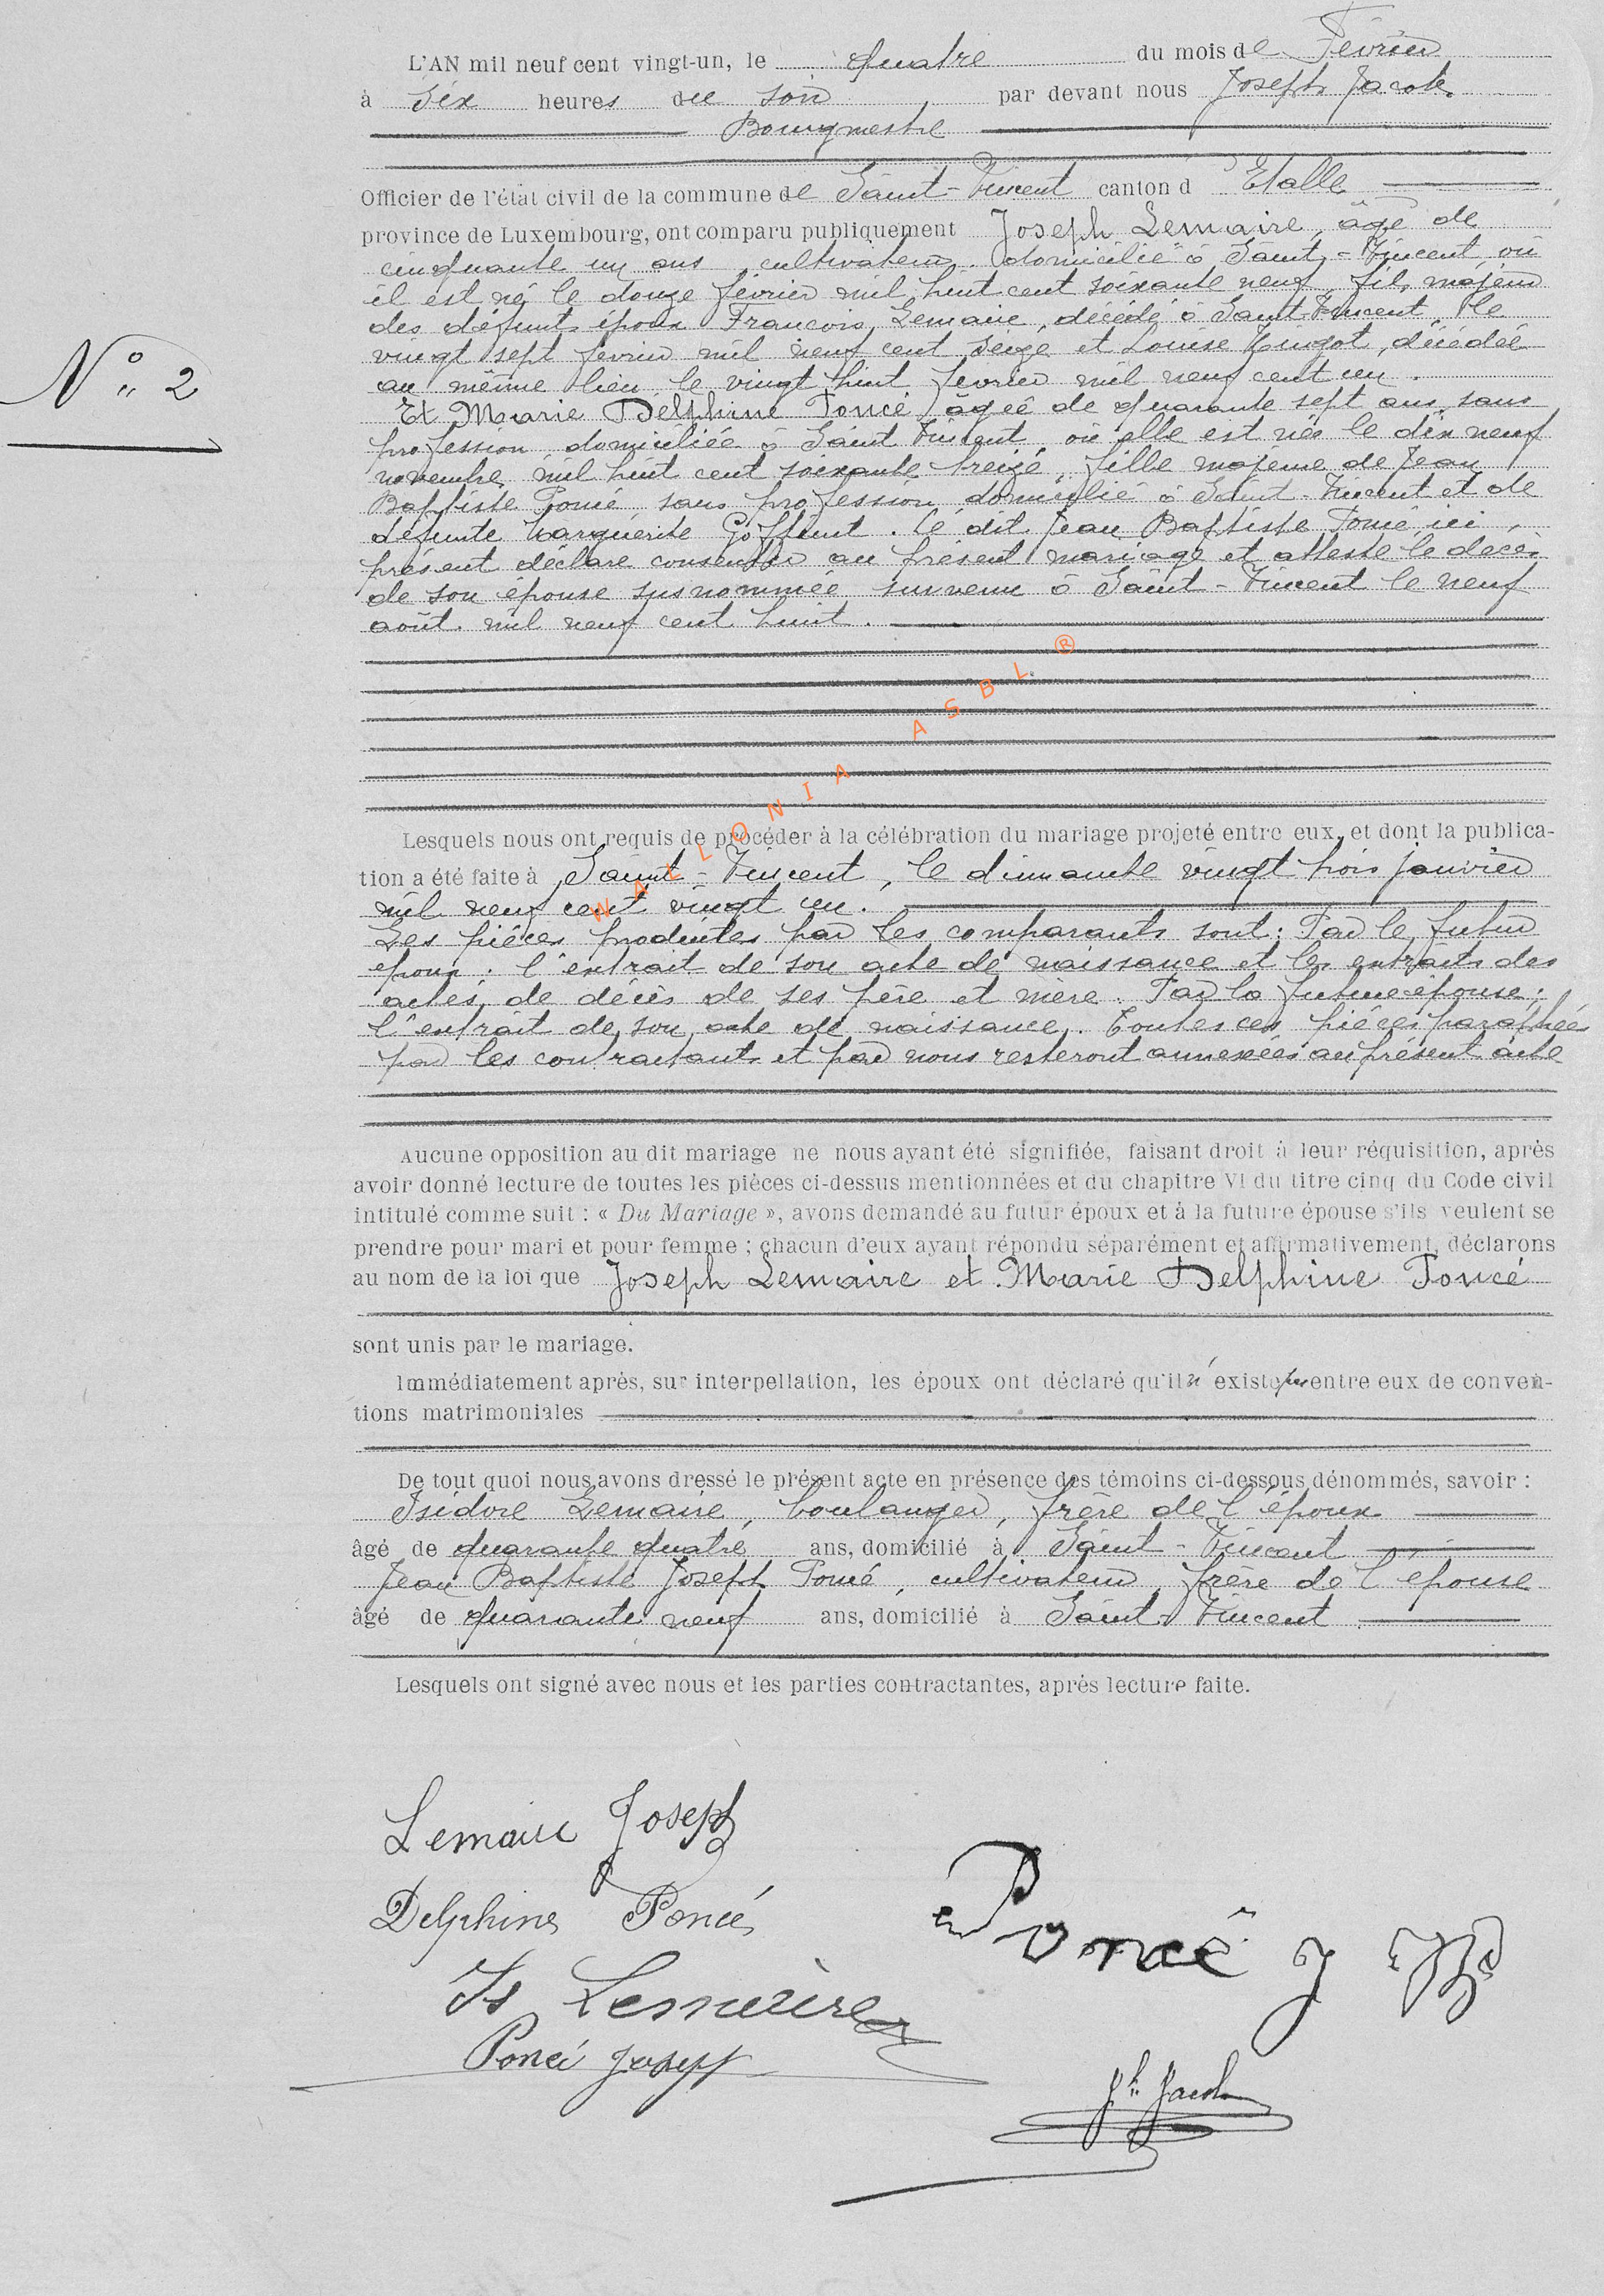 L'AN mil neuf cent vingt-un, le quatre du mois de Février
à six heures du soir par devant nous Joseph Jacob
Bourgmestre
Officier de l'état civil de la commune de Saint-Vincent canton d'Etalle
province de Luxembourg, ont comparu publiquement Joseph Lemaire, âgé de
cinquante un ans, cultivateur, domicilié à Saint-Vincent où
il est né le douze février mil huit cent soixante neuf, fils majeur
des défunts époux François Lemaire, décédé à Saint-Vincent, le
vingt sept février mil neuf cent seize et Louise, décédée
au même lieu le vingt huit février mil neuf cent un.
Et Marie Delphine Poncé, âgée de quarante sept ans, sans
profession, domiciliée à Saint Vincent, où elle est née le dix neuf
novembre mil huit cent soixante treize, fille majeure de Jean
Baptiste Poncé, sans profession, domicilié à Saint-Vincent et de
défunte Marguerite Goffinet. Le dit Jean Baptiste Poncé ici
présent déclare consentir au présent mariage et atteste le décès
de son épouse susnommée survenu à Saint-Vincent le neuf
août mil neuf cent huit.
N° 2
WALLONIA ASBL ®
Lesquels nous ont requis de procéder à la célébration du mariage projeté entre eux, et dont la publica-
tion a été faite à Saint-Vincent, le dimanche vingt trois janvier
mil neuf cent vingt un.
Les pièces produites par les comparants sont: Par le futur
époux: l'extrait de son acte de naissance et les extraits des
actes de décès de ses père et mère. Par la future épouse:
l'extrait de son acte de naissance. Toutes ces pièces paraphées
par les contractants et par nous resteront annexées au présent acte
Aucune opposition au dit mariage ne nous ayant été signifiée, faisant droit à leur réquisition, après
avoir donné lecture de toutes les pièces ci-dessus mentionnées et du chapitre VI du titre cinq du Code civil
intitulé comme suit : « Du Mariage », avons demandé au futur époux et à la future épouse s'ils veulent se
prendre pour mari et pour femme ; chacun d'eux ayant répondu séparément et affirmativement, déclarons
au nom de la loi que Joseph Lemaire et Marie Delphine Poncé
sont unis par le mariage.
Immédiatement après, sur interpellation, les époux ont déclaré qu'il n'existe pas entre eux de conven-
tions matrimoniales
De tout quoi nous avons dressé le présent acte en présence des témoins ci-dessous dénommés, savoir :
Isidore Lemaire, boulanger, frère de l'époux
âgé de quarante quatre ans, domicilié à Saint-Vincent
Jean Baptiste Joseph Poncé, cultivateur, frère de l'épouse
âgé de quarante neuf ans, domicilié à Saint-Vincent
Lesquels ont signé avec nous et les parties contractantes, après lecture faite.
Lemaire Joseph
Delphine Poncé
Poncé J
Is Lemaire
Poncé Joseph
Jh Jacob